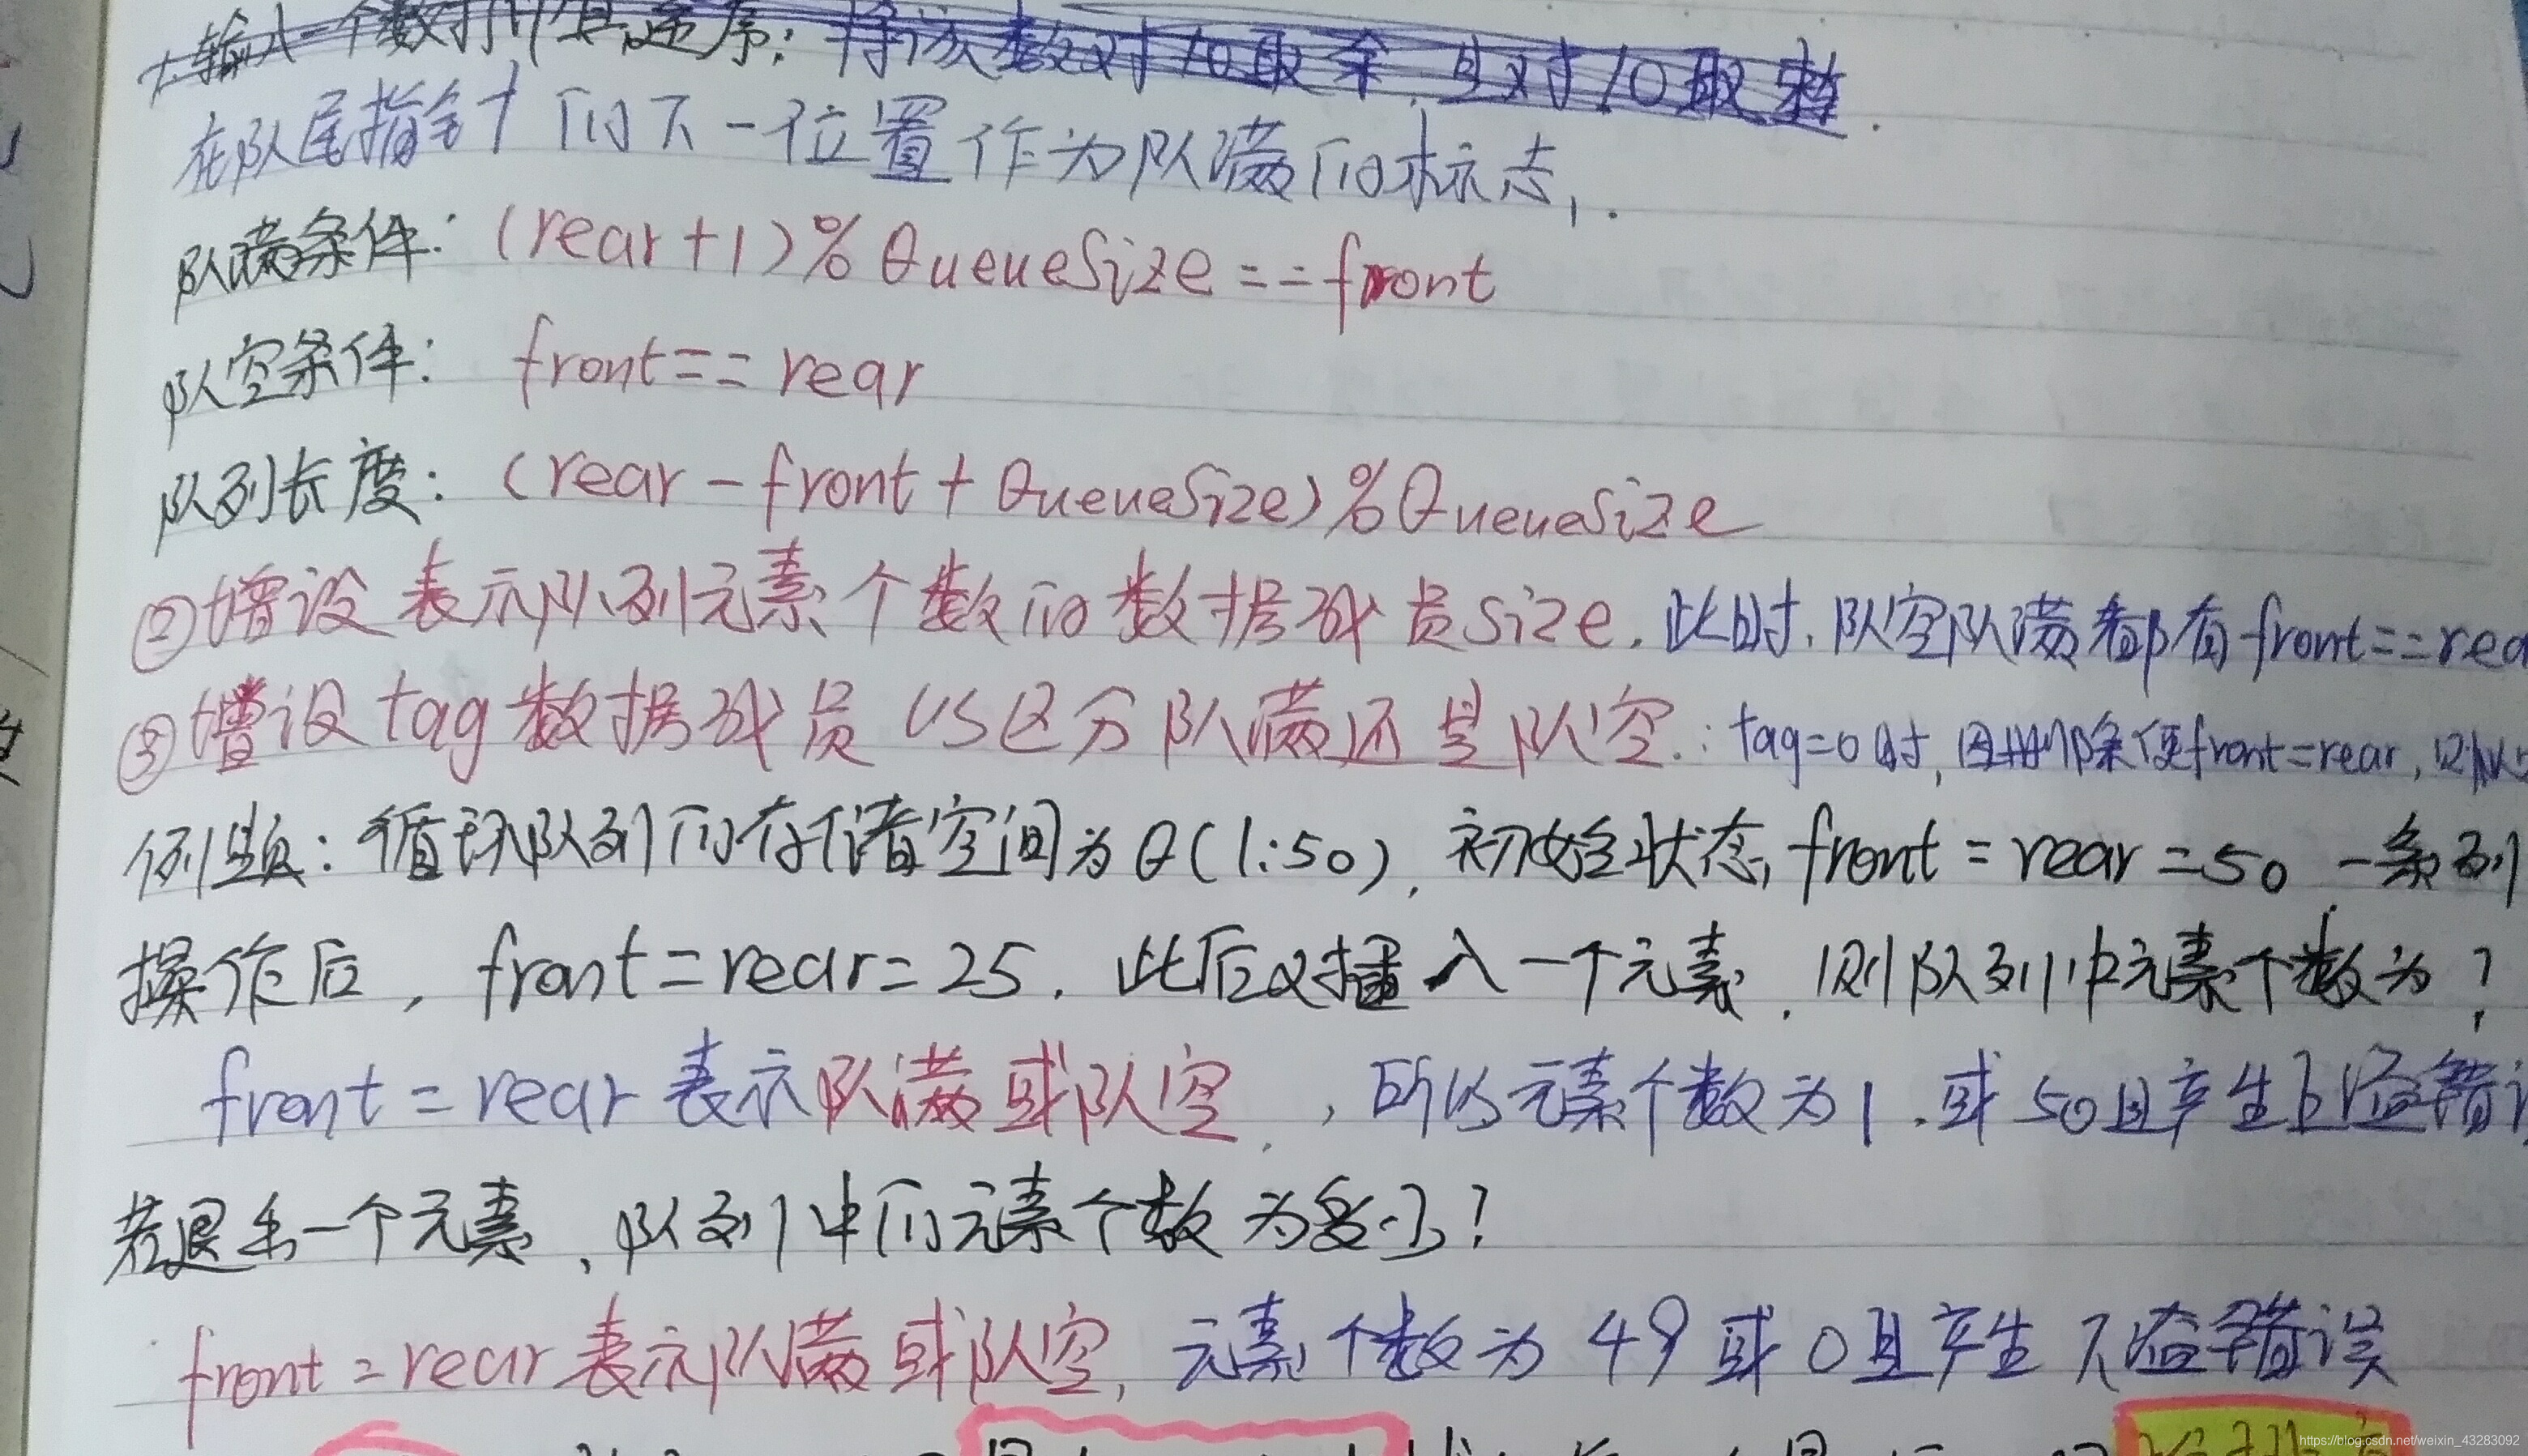 输入一个数打印其逆序：将该数对10取余，且对10取整.
在队尾指针的下一位置作为队满的标志，.
队满条件：(rear+1)%QueueSize==front
队空条件：front==rear
队列长度：(rear-front+QueueSize)%QueueSize
②增设表示队列元素个数的数据成员size.此时，队空队满都有front==rea
③增设tag数据成员以区分队满还是队空.：tag=0时，因删除使front=rear，则队空
例题：循环队列的存储空间为Q(1:50)，初始状态，front=rear=50 一系列
操作后，front=rear=25.此后又插入一个元素，则队列中元素个数为？
front=rear表示队满或队空，所以元素个数为1.或50且产生上溢错误
若退出一个元素，队列中的元素个数为多少？
front=rear表示队满或队空，元素个数为49或0且产生下溢错误
https://blog.csdn.net/weixin_43283092